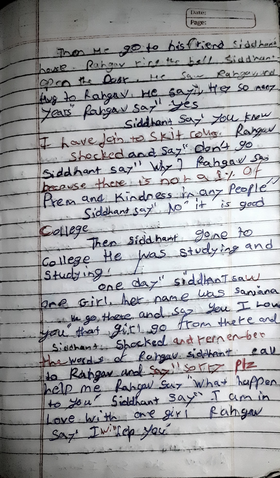 Date:
Page:
Then He go to his friend Siddhant
house. Rahgav ring the bell. Siddhant
open the Door. He Saw Rahgav
Hug to Rahgav. He say "Hey so many
years" Rahgav Say" yes
Siddhant Say You know
I have join to Skit collg. Rahgav
Shocked and Say "Don't go
Siddhant Say" Why? Rahgav Say
because there is not a 1% of
Prem and Kindness in any People"
Siddhant say" No" it is good
College
Then Siddhant gone to
College He was studying and
Studying!
one day" SiddhanT saw
one Girl. her name was sanjana
He go there and say You I Love
you" that girl go from there and
Siddhant Shocked and remember
the words of Rahgav siddhant call
to Rahgav and Say" sorry Plz
help me Rahgav say "what happen
to you" Siddhant Say" I am in
Love with one girl Rahgav
Say I will help you"